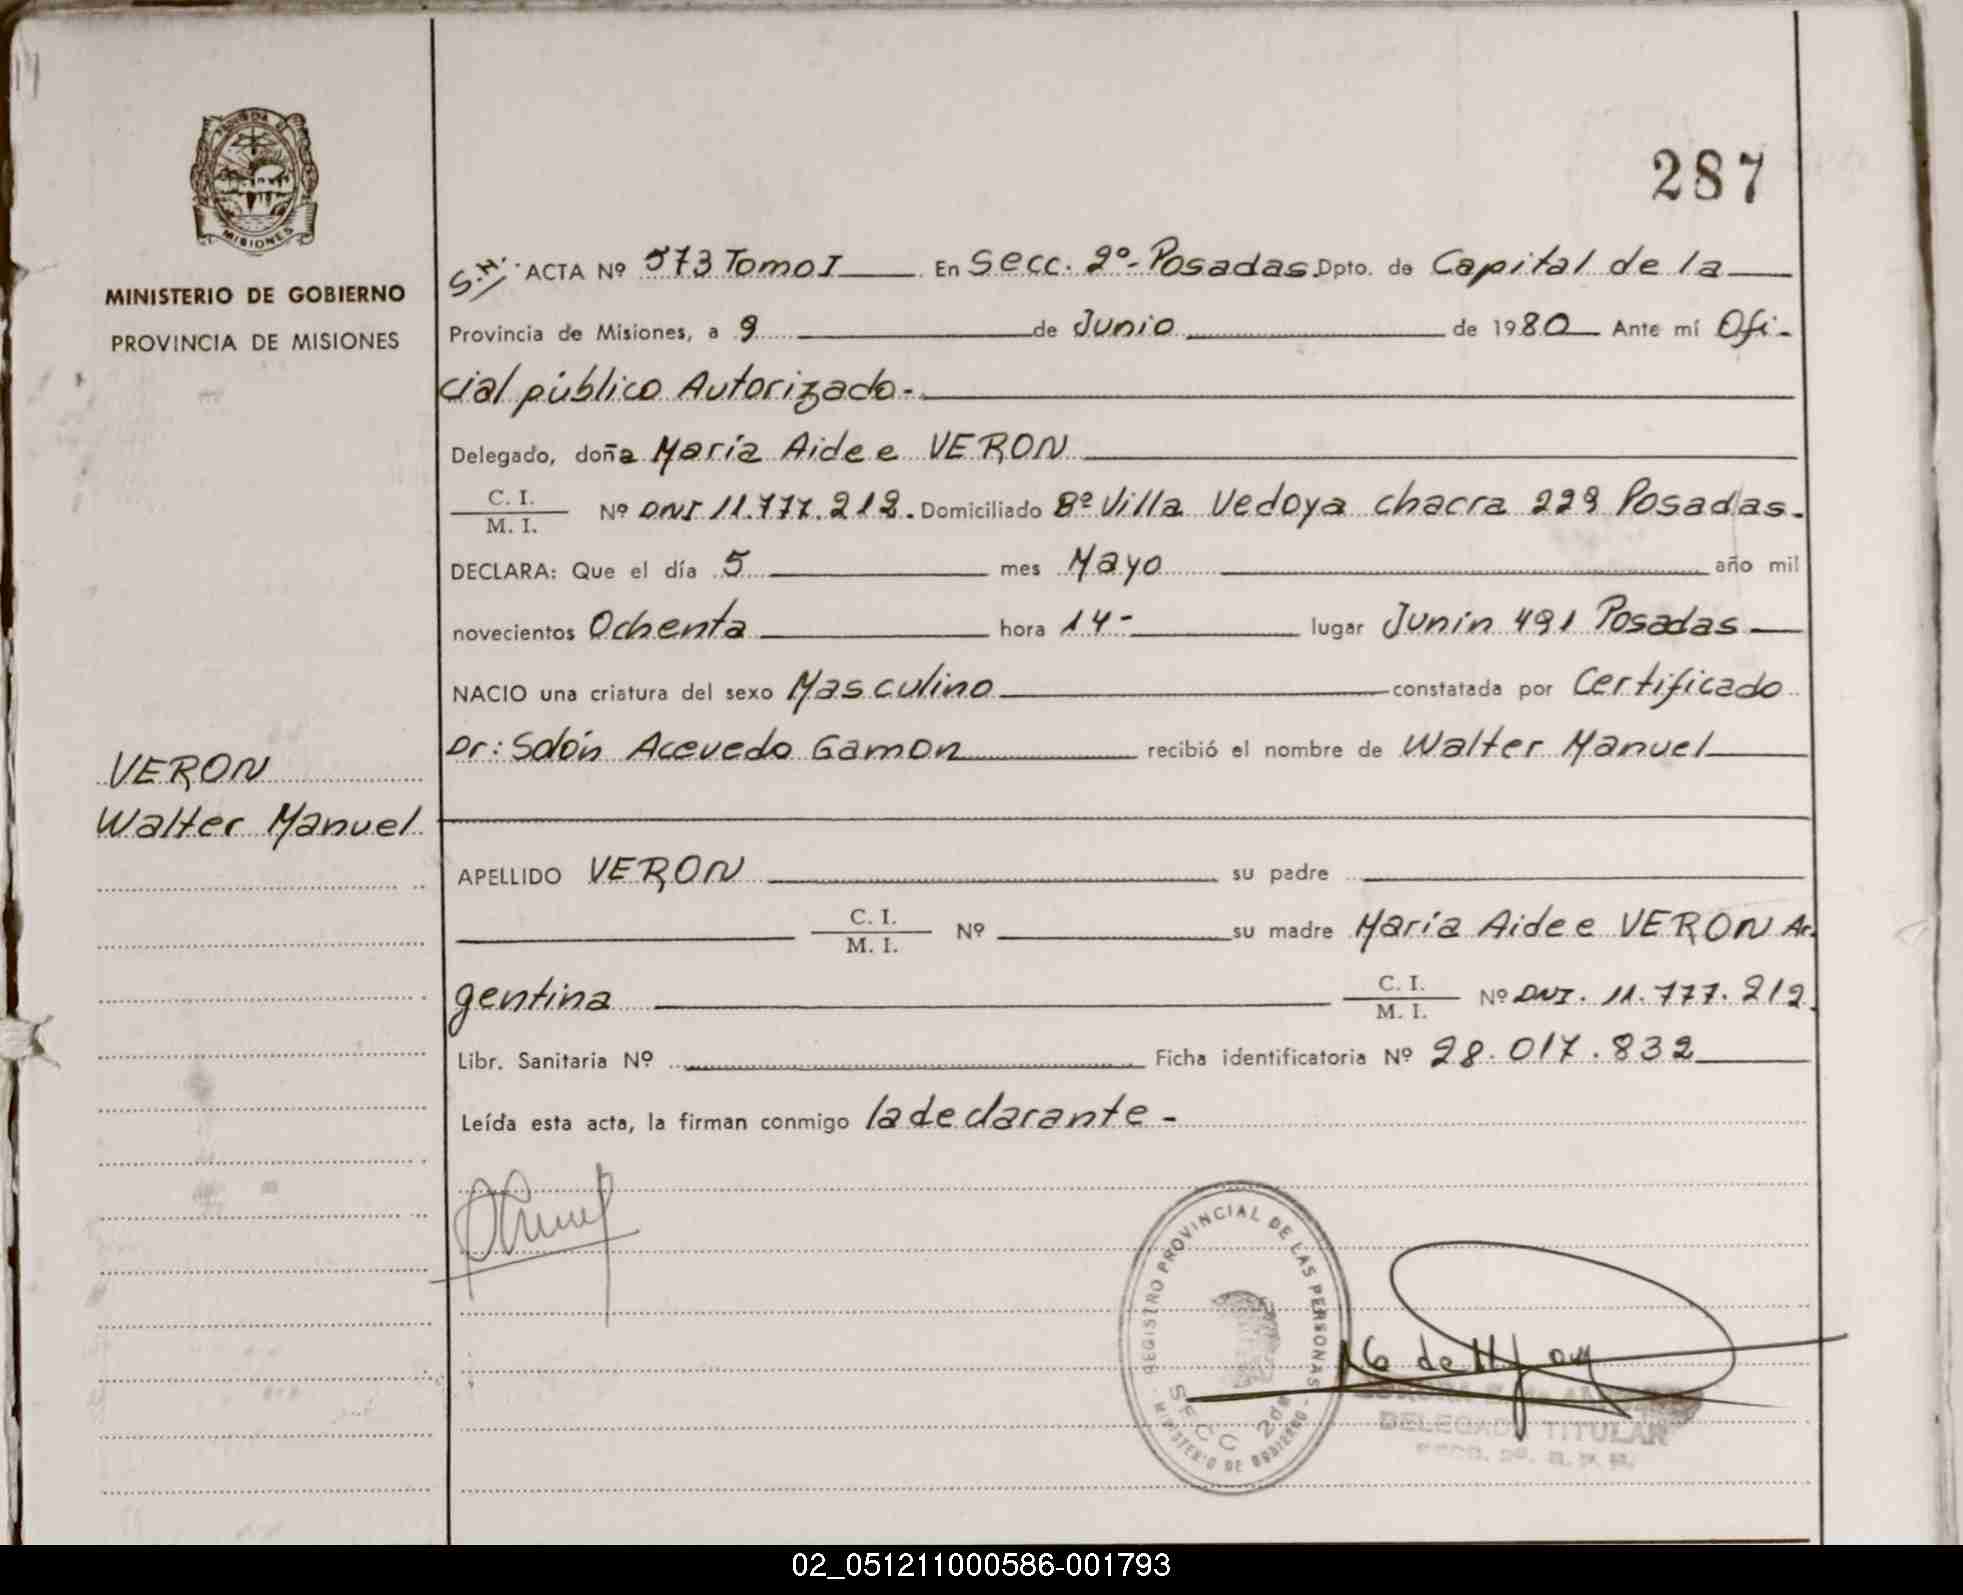 287
MISIONES
MINISTERIO DE GOBIERNO
PROVINCIA DE MISIONES
VERON
Walter Manuel
S.H. ACTA Nº 573 Tomo I En Secc. 2º- Posadas Dpto. de Capital de la
Provincia de Misiones, a 9 de Junio de 1980 Ante mí Ofi-
cial público Autorizado-
Delegado, doña María Aidee VERON
C. I.
M. I. Nº DNI 11.777.212. Domiciliado 8º Villa Vedoya chacra 229 Posadas.
DECLARA: Que el día 5 mes Mayo año mil
novecientos Ochenta hora 14- lugar Junín 491 Posadas
NACIO una criatura del sexo Masculino constatada por Certificado
Dr: Solón Acevedo Gamon recibió el nombre de Walter Manuel
APELLIDO VERON su padre
C. I.
M. I. Nº su madre María Aidee VERON Ar-
gentina C. I.
M. I. Nº DNI. 11.777.212.
Libr. Sanitaria Nº Ficha identificatoria Nº 28.017.832
Leída esta acta, la firman conmigo la declarante-
REGISTRO PROVINCIAL DE LAS PERSONAS
SECC 2da
MINISTERIO DE GOBIERNO
DELEGADA TITULAR
SECC. 2ª. R. P. P.
02_051211000586-001793